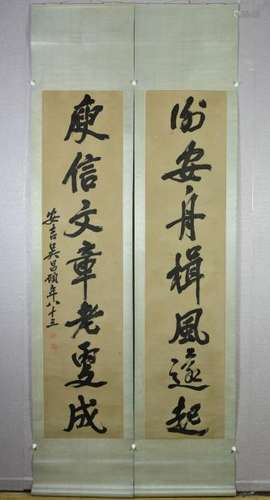 謝安舟楫風還起
庾信文章老更成
安吉吳昌碩年八十三